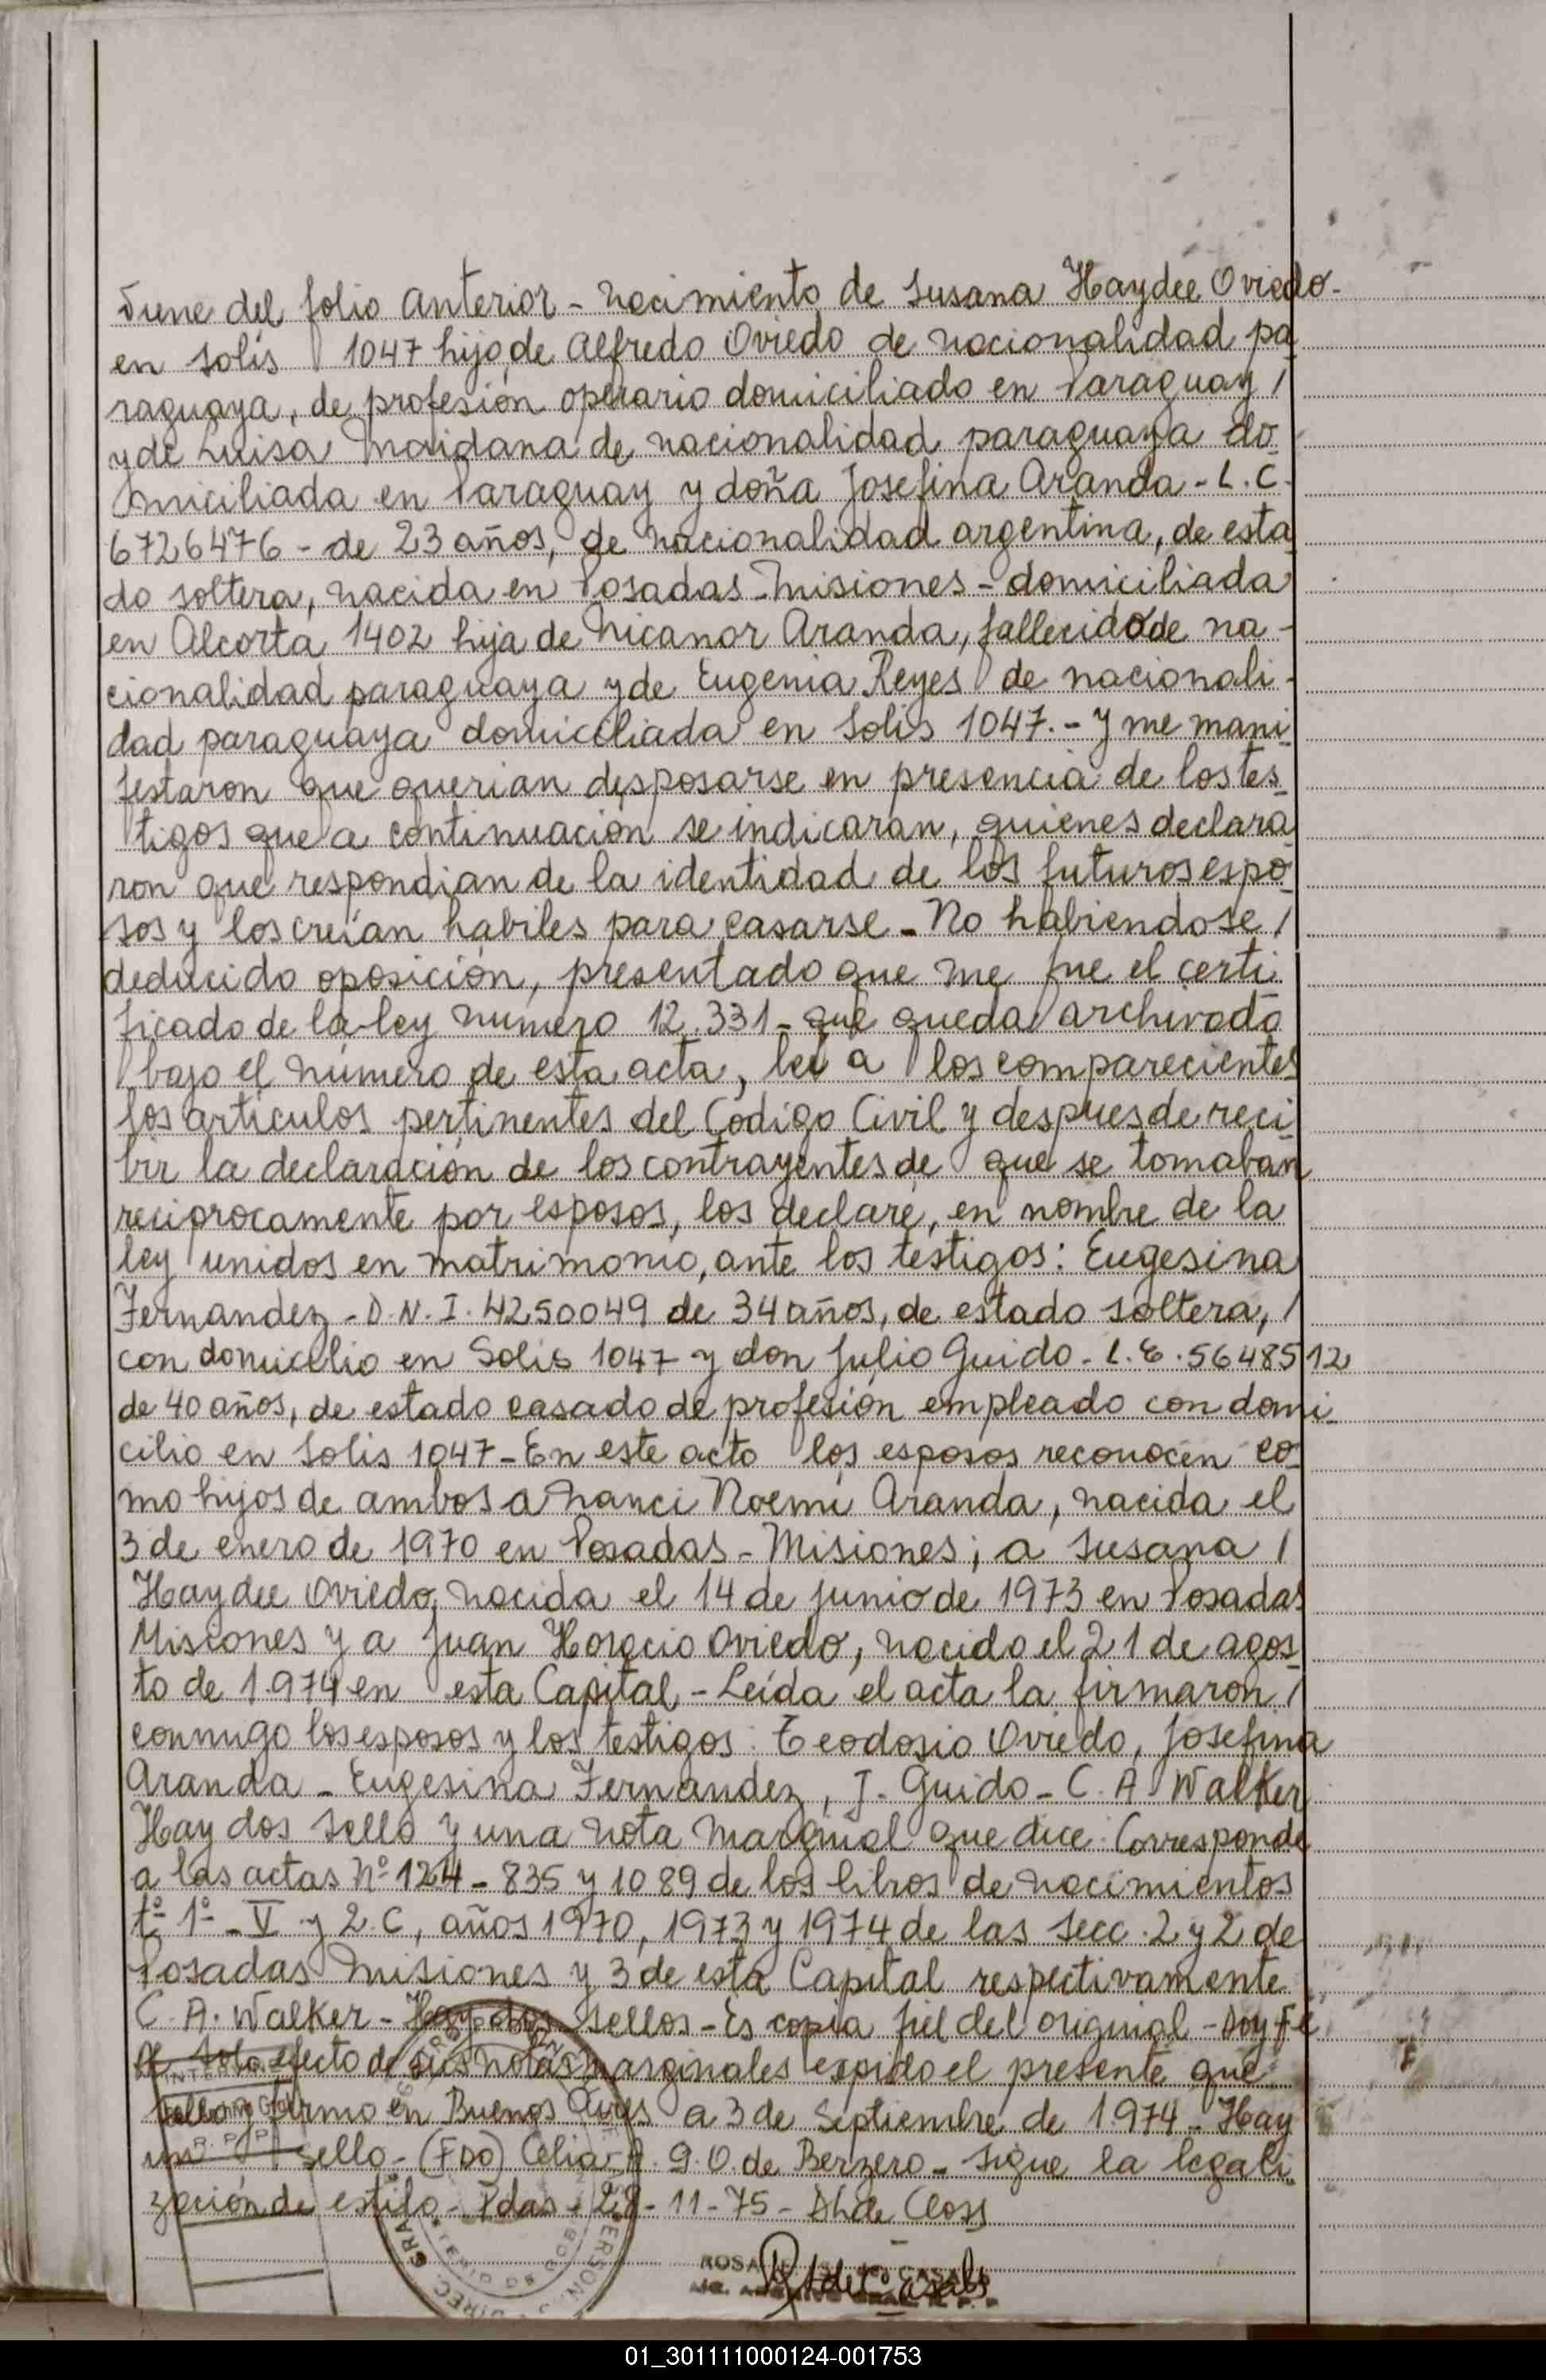 Viene del folio anterior - nacimiento de Susana Haydée Oviedo -
en Solís 1047 hijo de Alfredo Oviedo de nacionalidad pa
raguaya, de profesión operario domiciliado en Paraguay /
y de Luisa Maidana de nacionalidad paraguaya do
miciliada en Paraguay y doña Josefina Aranda - L.C.
6726476 - de 23 años, de nacionalidad argentina, de esta
do soltera, nacida en Posadas - Misiones - domiciliada
en Alcorta 1402 hija de Nicanor Aranda, fallecido de na-
cionalidad paraguaya y de Eugenia Reyes de nacionali-
dad paraguaya domiciliada en Solis 1047. - y me mani
festaron que querian desposarse en presencia de los tes
tigos que a continuación se indicaran, quienes declara
ron que respondian de la identidad de los futuros espo
sos y los creían habiles para casarse - No habiendose /
deducido oposición, presentado que me fue el certi
ficado de la ley numero 12.331 - que queda archivado
bajo el número de esta acta, lei a los comparecientes
los artículos pertinentes del Código Civil y despues de reci
bir la declaración de los contrayentes de que se tomaban
reciprocamente por esposos, los declaré, en nombre de la
ley unidos en matrimonio, ante los testigos: Eugesina
Fernandez - D.N.I. 4250049 de 34 años, de estado soltera, /
con domicilio en Solis 1047 y don Julio Guido - L.E. 5648512
de 40 años, de estado casado de profesión empleado con domi-
cilio en Solis 1047 - En este acto los esposos reconocen co
mo hijos de ambos a Nanci Noemí Aranda, nacida el
3 de enero de 1970 en Posadas - Misiones; a Susana /
Haydee Oviedo, nacida el 14 de junio de 1973 en Posadas
Misiones y a Juan Horacio Oviedo, nacido el 21 de agos
to de 1974 en esta Capital - Leída el acta la firmaron /
conmigo los esposos y los testigos: Teodosio Oviedo, Josefina
Aranda - Eugesina Fernandez, J. Guido - C. A. Walker
Hay dos sello y una nota marginal que dice: Corresponde
a las actas Nº 124 - 835 y 1089 de los libros de nacimientos
tº 1º - V y 2.C, años 1970, 1973 y 1974 de las Secc. 2 y 2 de
Posadas Misiones y 3 de esta Capital respectivamente
C. A. Walker - Hay dos sellos - Es copia fiel del original - Doy Fe
Al solo efecto de sus notas marginales expido el presente que
sello y firmo en Buenos Aires a 3 de Septiembre de 1974 - Hay
un sello - (FDO) Celia A. G. O. de Berzero - Sigue la legali
zación de estilo - Pdas - 28 - 11 - 75 -